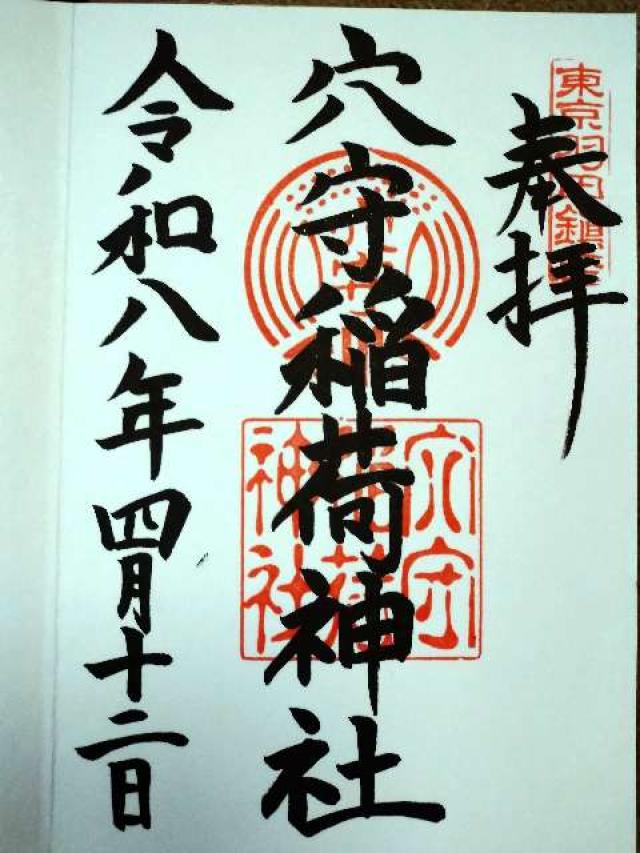 東京羽田鎮座
奉拝
穴守稲荷神社
穴守稲荷神社
令和八年四月十二日